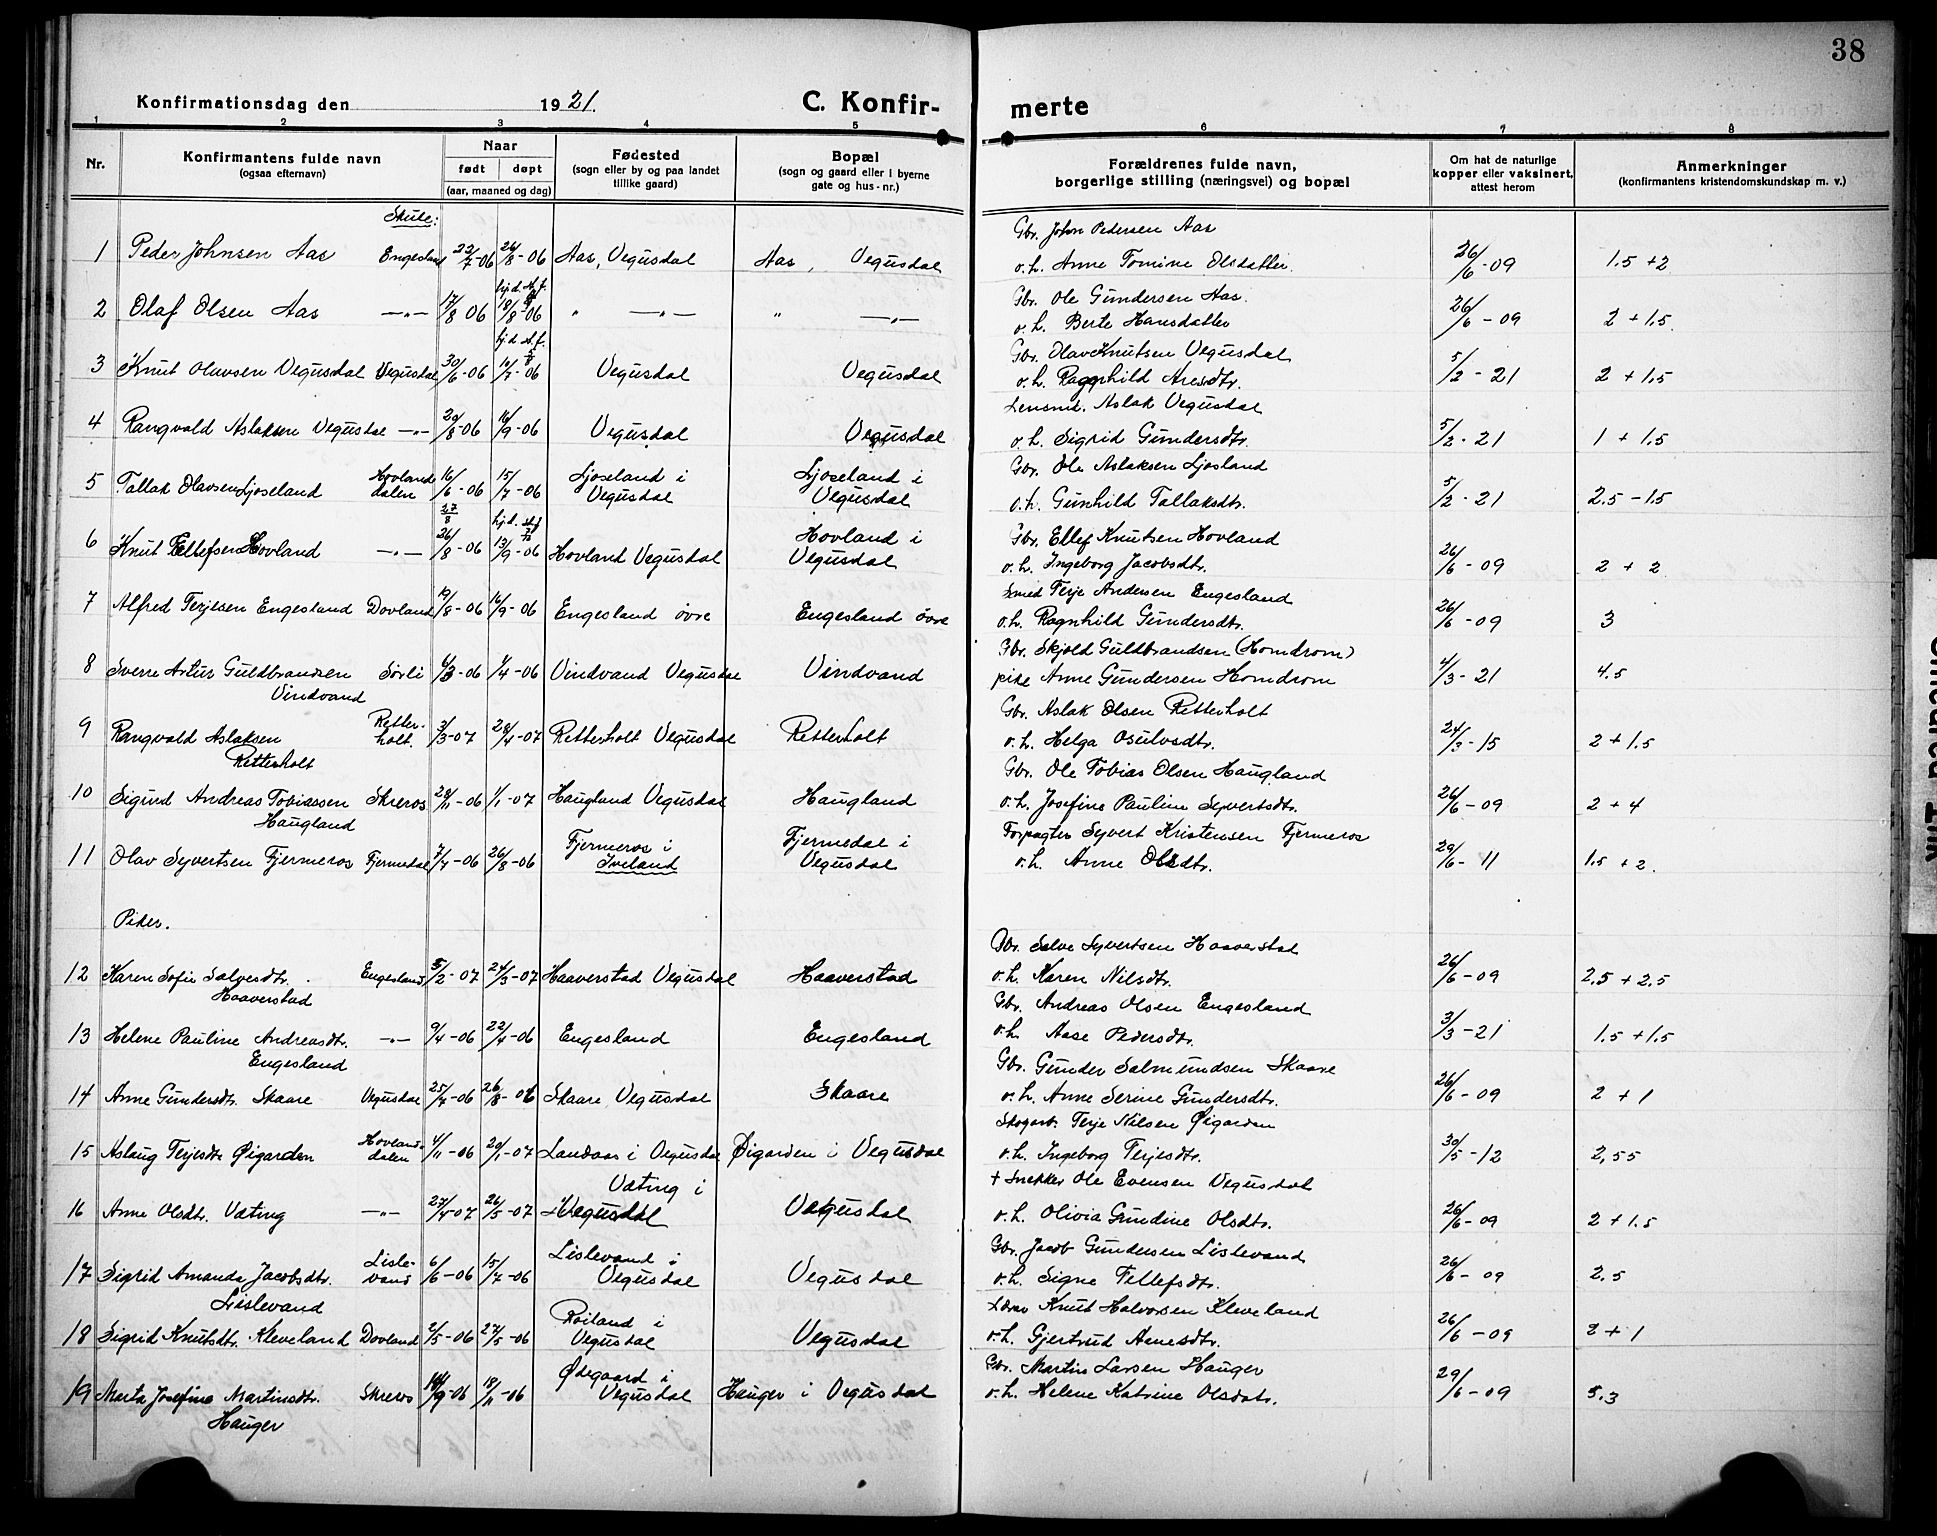 38
Konfirmationsdag den 1921.
C. Konfir-
merte
1 2 3 4 5 6 7 8
Nr.
Konfirmantens fulde navn
(ogsaa efternavn)
Naar
født døpt
(aar, maaned og dag)
Fødested
(sogn eller by og paa landet
tillike gaard)
Bopæl
(sogn og gaard eller i byerne
gate og hus-nr.)
Forældrenes fulde navn,
borgerlige stilling (næringsvei) og bopæl
Om hat de naturlige
kopper eller vaksinert,
attest herom
Anmerkninger
(konfirmantens kristendomskundskap m. v.)
Skule:
Gbr. John Pedersen Aas
1 Peder Johnsen Aas Engesland 22/7-06 26/8-06 Aas, Vegusdal Aas, Vegusdal o.h. Anne Tomine Olsdatter. 26/6-09 1.5 + 2
hj.d. st.f.
Gbr. Ole Gundersen Aas.
2 Olaf Olsen Aas —"— 17/8 06 18/8-06 " —"— " —"— o.h. Berte Hansdatter 26/6-09 2 + 1.5.
hj.d. st.f.
Gbr. Olav Knutsen Vegusdal
3 Knut Olavsen Vegusdal Vegusdal 30/6-06 10/7-06 Vegusdal Vegusdal o.h. Ragnhild Aresdtr. 5/2-21 2 + 1.5
Lensmd. Aslak Vegusdal
4 Rangvald Aslaksen Vegusdal —"— 20/8-06 16/9-06 Vegusdal Vegusdal o.h. Sigrid Gundersdtr. 5/2-21 1 + 1.5
Gbr. Ole Aslaksen Ljosland
5 Tallak Olavsen Ljoseland Hovlanddalen 16/6-06 15/7-06 Ljoseland i Vegusdal Ljoseland i Vegusdal o.h. Gunhild Tallaksdtr. 5/2-21 2.5 - 1.5
27/8 hj.d. st.f.
Gbr. Ellef Knutsen Hovland
6 Knut Ellefsen Hovland —"— 26/8-06 13/9-06 Hovland Vegusdal Hovland i Vegusdal o.h. Ingeborg Jacobsdtr. 26/6-09 2 + 2
Smed Terje Andersen Engesland
7 Alfred Terjesen Engesland Dovland 19/8-06 16/9-06 Engesland övre Engesland övre o.h. Ragnhild Gundersdtr. 26/6-09 3
Gbr. Skjold Guldbrandsen (Homdrom)
8 Sverre Artur Guldbrandsen Sørli 4/3-06 1/4-06 Vindvand Vegusdal Vindvand pike Anne Gundersen Homdrom 4/3-21 4.5
Vindvand
Gbr. Aslak Olsen Retterholt
9 Rangvald Aslaksen Retterholt. 3/3-07 28/4-07 Retterholt Vegusdal Retterholt o.h. Helga Osulvsdtr. 24/3-15 2 + 1.5
Retterholt
Gbr. Ole Tobias Olsen Haugland
10 Sigurd Andreas Tobiassen Skreros 28/11-06 1/1-07 Haugland Vegusdal Haugland o.h. Josefine Pauline Syvertsdtr. 26/6-09 2 + 4
Haugland
Forpagter Syvert Kristensen Fjermeros
11 Olav Syvertsen Fjermeros Fjermedal 7/7-06 26/8-06 Fjermeros i Iveland Fjermedal i Vegusdal o.h. Anne Olsdtr. 29/6-11 1.5 + 2.
Piker.
Gbr. Salve Syvertsen Haaverstad
12 Karen Sofie Salvesdtr. Engesland 5/2-07 24/3-07 Haaverstad Vegusdal Haaverstad o.h. Karen Nilsdtr. 26/6-09 2.5 + 2.5
Haaverstad
Gbr. Andreas Olsen Engesland
13 Helene Pauline Andreasdtr. —"— 9/4-06 22/4-06 Engesland Engesland o.h. Aase Pedersdtr. 3/3-21 1.5 + 1.5
Engesland
Gbr. Gunder Salmundsen Skaare
14 Anne Gundersdtr. Skaare Vegusdal 25/7-06 26/8-06 Skaare Vegusdal Skaare o.h. Anne Serine Gundersdtr. 26/6-09 2 + 1
Skogarb. Terje Nilsen Øigarden
15 Aslaug Terjesdtr Øigarden Hovlanddalen 4/11-06 20/1-07 Landaas i Vegusdal Øigarden i Vegusdal o.h. Ingeborg Terjesdtr. 30/5-12 2,55
+ Snekker Ole Evensen Vegusdal
16 Anne Olsdtr. Væting —"— 27/4-07 26/5-07 Væting i Vegusdal Vegusdal o.h. Olivia Gundine Olsdtr. 26/6-09 2 + 1.5
Gbr. Jacob Gundersen Lislevand
17 Sigrid Amanda Jacobsdtr. Lislevand 6/6-06 15/7-06 Lislevand i Vegusdal Vegusdal o.h. Signe Tellefsdtr. 26/6-09 2.5
Lislevand
Lærer Knut Halvorsen Kleveland
18 Sigrid Knutsdtr. Kleveland Dovland 2/5-06 27/5-06 Röiland i Vegusdal Vegusdal o.h. Gjertrud Aanesdtr. 26/6-09 2 + 1
Gbr. Martin Larsen Hauger
19 Marta Josefine Martinsdtr. Skreros 14/9-06 18/11-06 Ødegaard i Vegusdal Hauger i Vegusdal o.h. Helene Katrine Olsdatr. 29/6-09 5.3
Hauger